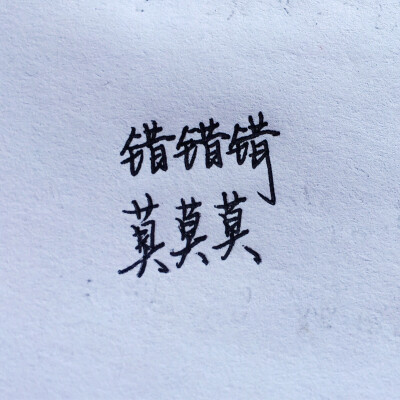 错错错
莫莫莫